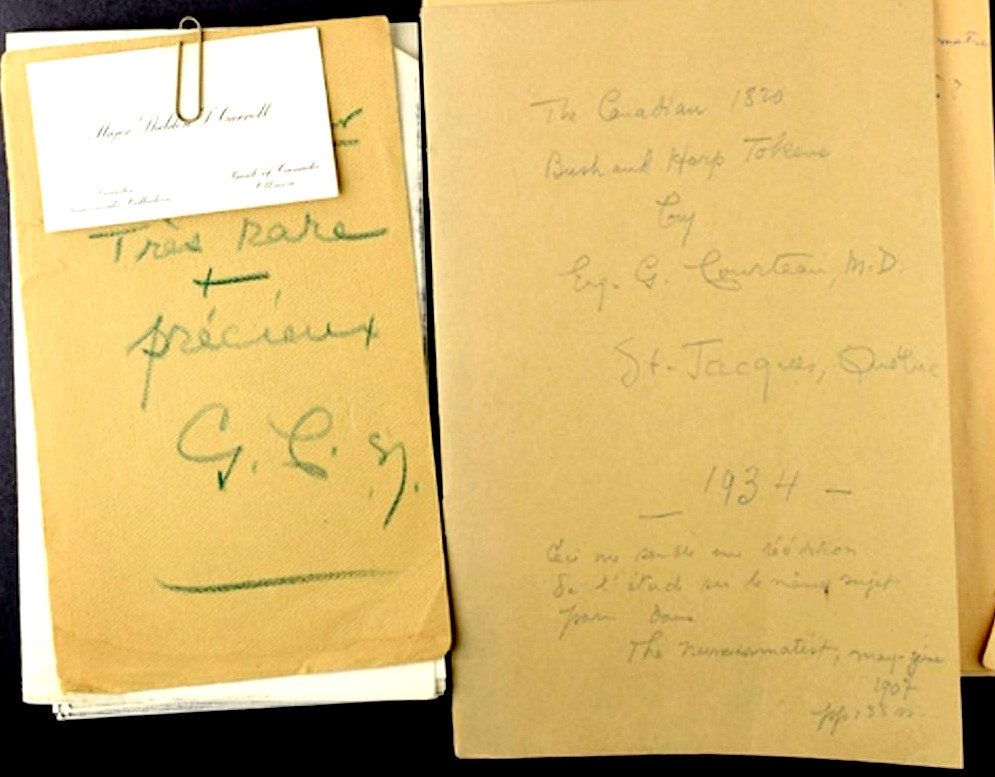 Major Sheldon S Carroll
Bank of Canada
Ottawa
Très rare
+
précieux
G. C. sj.
The Canadian 1820
Bush and Harp Tokens
by
Eug. G. Courteau, M.D.
St. Jacques, Québec
1934 —
—
Ceci me semble une réédition
de l'étude sur le même sujet
paru dans
The numismatist, may-june
1907
pp 133
?